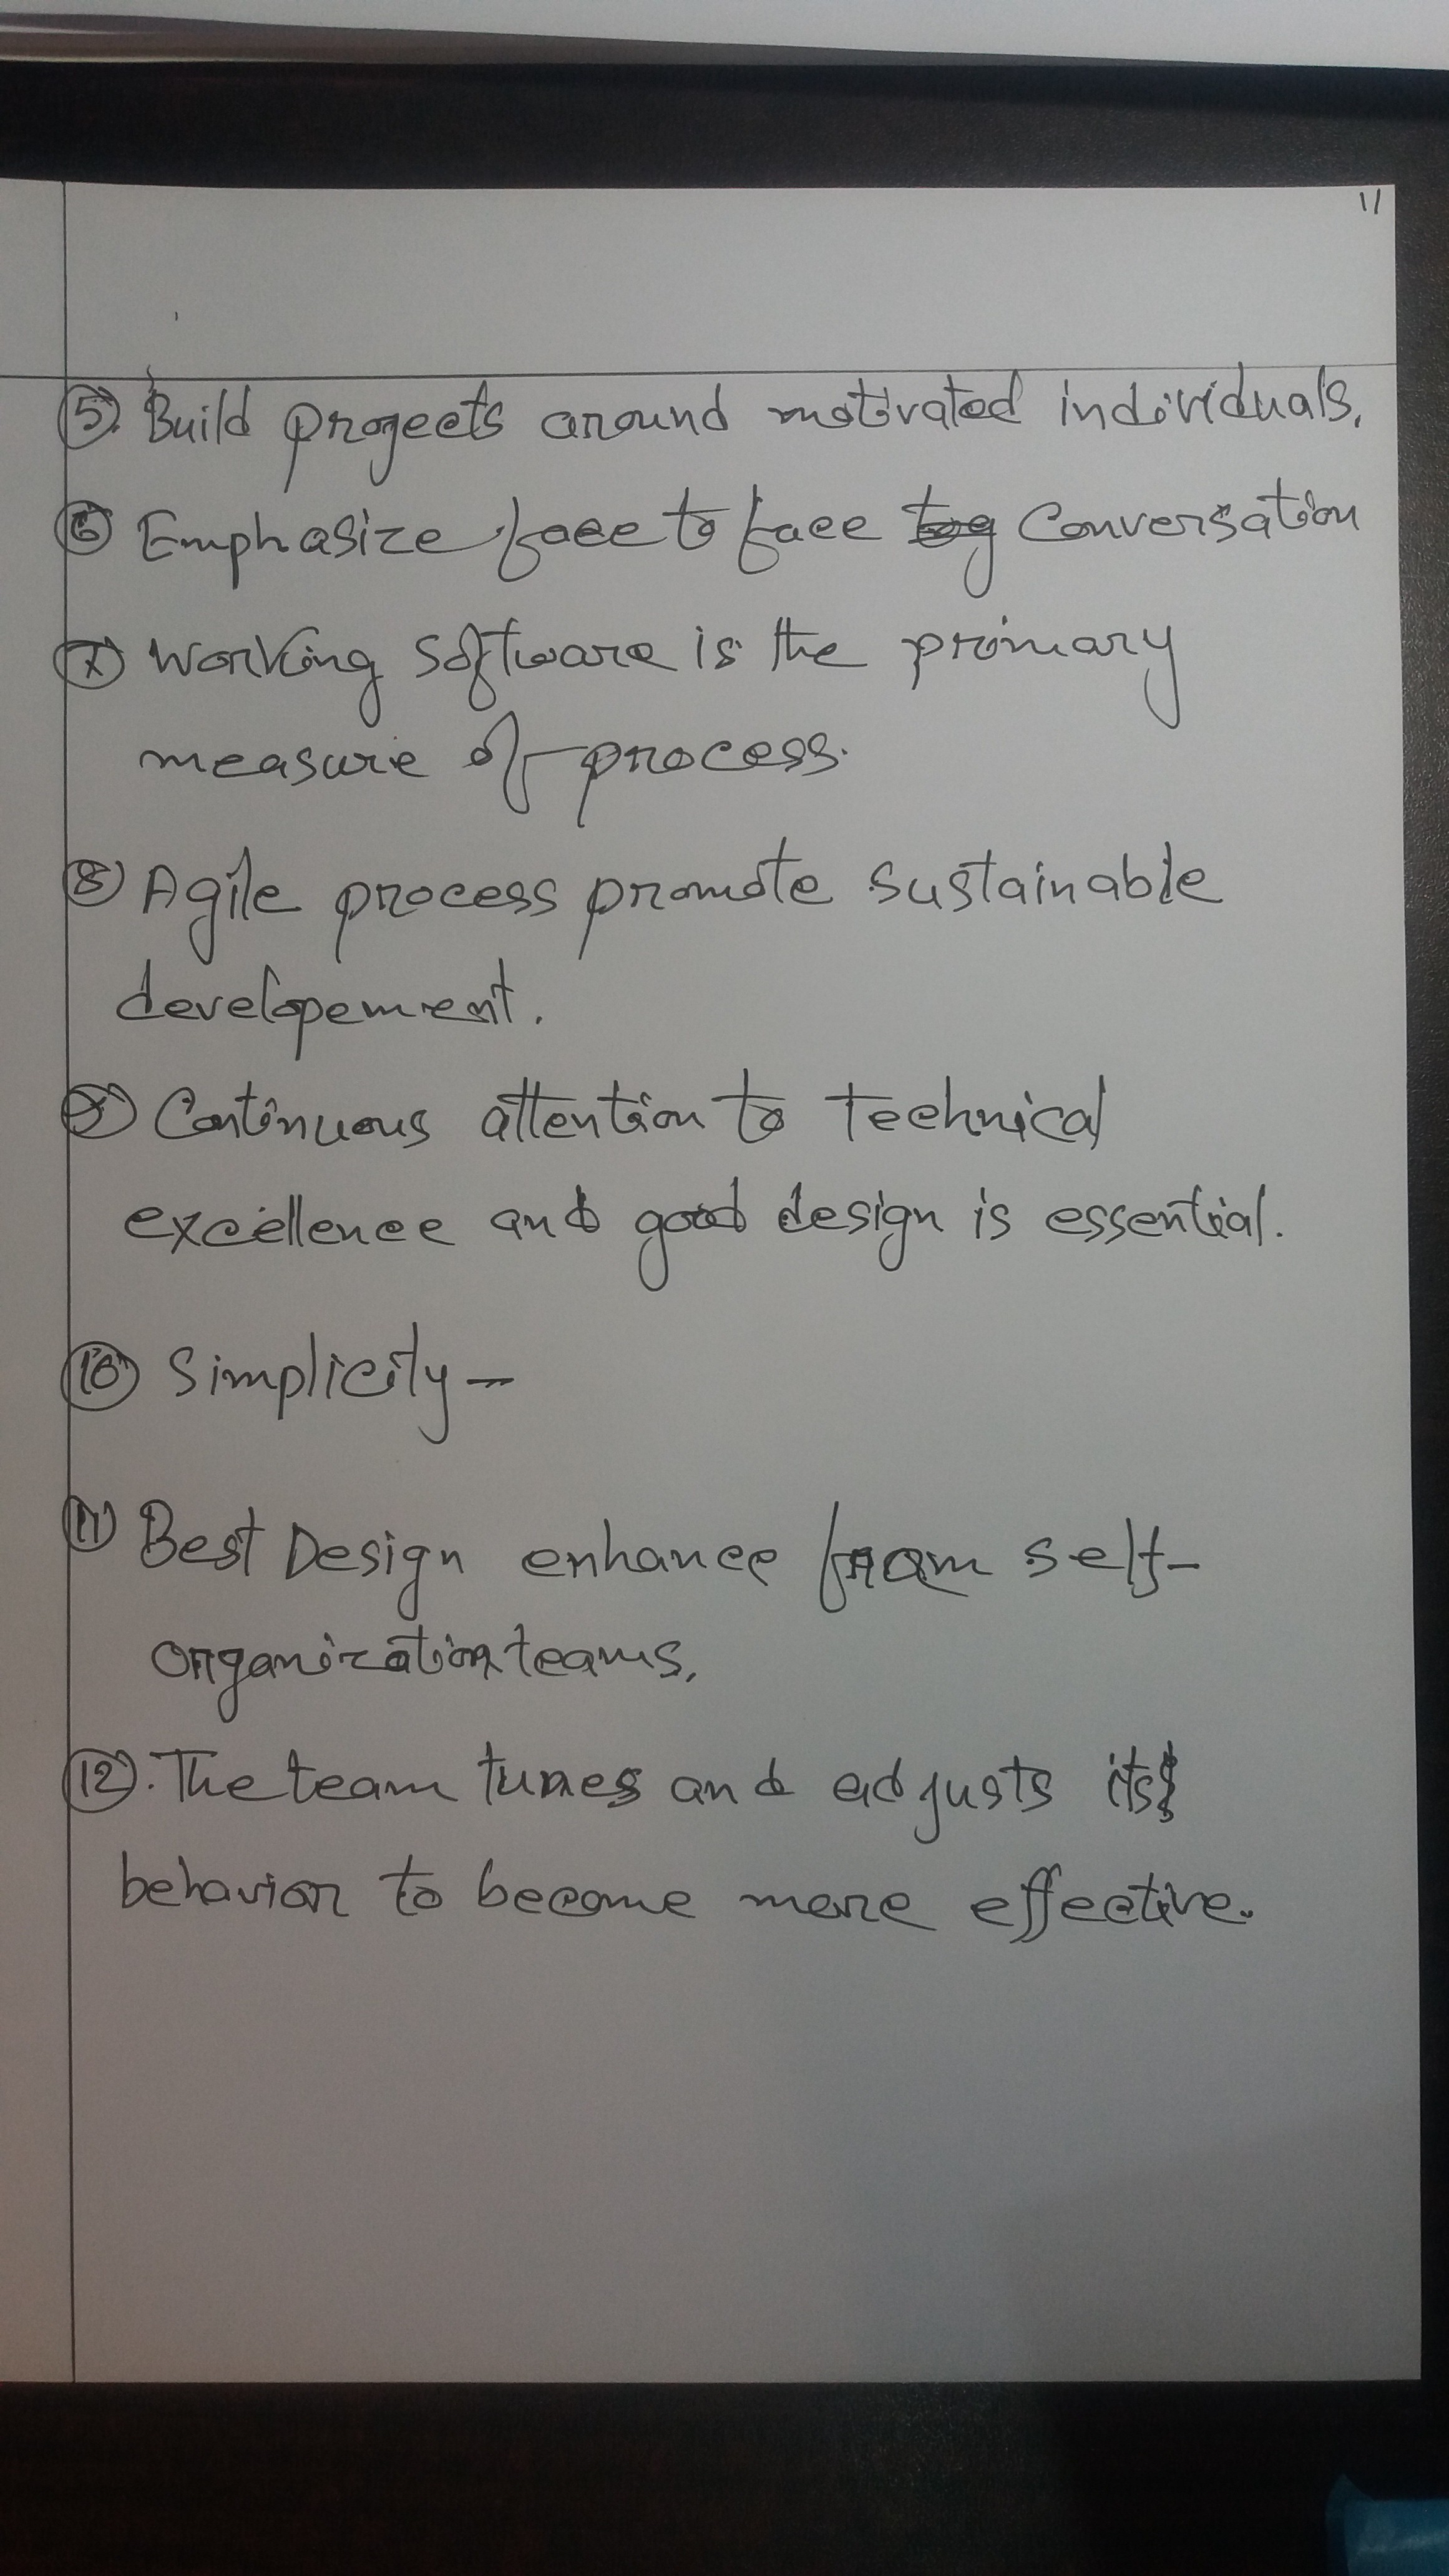 11
5. Build projects around motivated individuals.
6 Emphasize face to face conversation
7 Working software is the primary
measure of process.
8 Agile process promote sustainable
developement.
9 Continuous attention to technical
excellence and good design is essential.
10 Simplicity -
11 Best Design enhance from self-
organization teams.
12. The team tunes and adjusts its
behavior to become more effective.